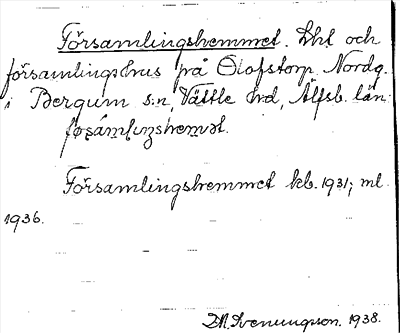 Församlingshemmet. Lht och
församlingshus på Olofstorp Nordg.
i Bergum s:n, Vättle hd, Älfsb. län:
Församlingshemmet kb. 1931; ml.
1936.
1938.